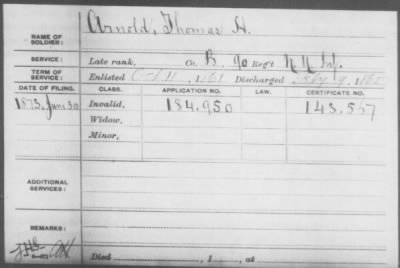 NAME OF SOLDIER: Arnold, Thomas H.
SERVICE: Late rank, Co. B, 90 Reg't N.Y. Inf.
TERM OF SERVICE: Enlisted Oct 11, 1861 Discharged 1865
DATE OF FILING. CLASS. APPLICATION NO. LAW. CERTIFICATE NO.
1873, June 30 Invalid, 184.950 143.557
Widow,
Minor,
ADDITIONAL SERVICES:
REMARKS:
Died , 1 , at